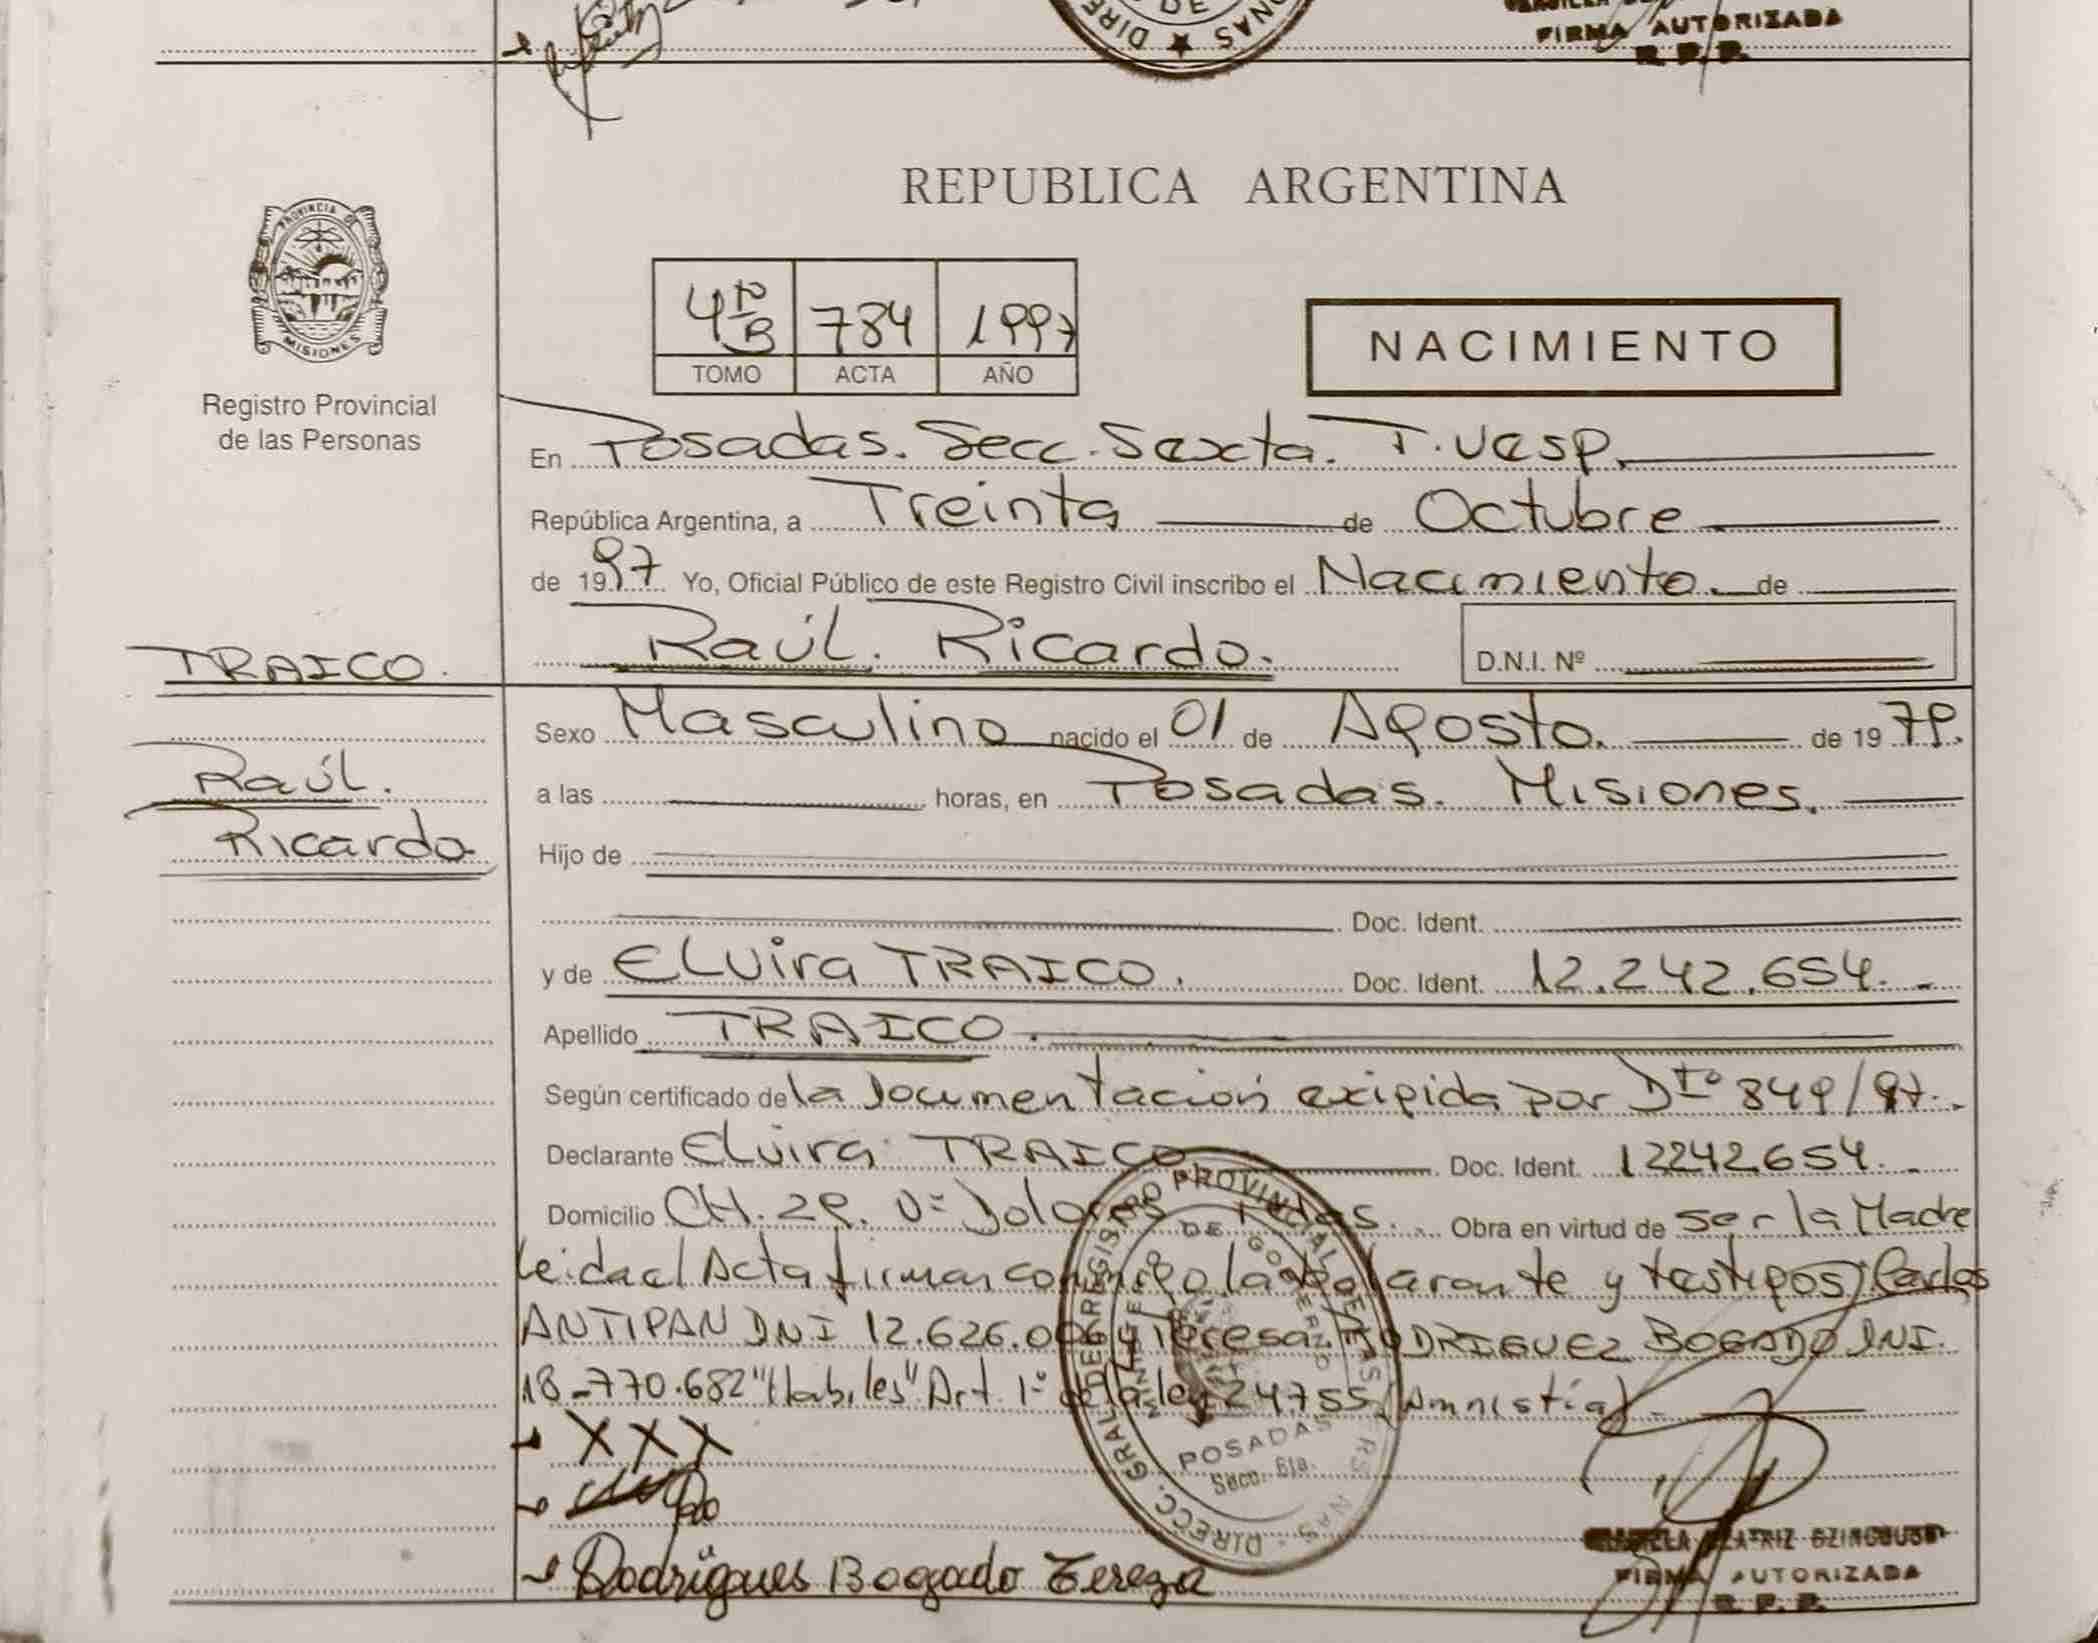 DIRE
DE
NAS
FIRMA AUTORIZADA
R. P. P.
REPUBLICA ARGENTINA
PROVINCIA DE
MISIONES
Registro Provincial
de las Personas
4to B 784 1997
TOMO ACTA AÑO
NACIMIENTO
En Posadas. Secc. Sexta. T. Vesp.
República Argentina, a Treinta de Octubre
de 1997 Yo, Oficial Público de este Registro Civil inscribo el Nacimiento de
Raúl. Ricardo. D.N.I. Nº
TRAICO.
Raúl.
Ricardo
Sexo Masculino nacido el 01 de Agosto. de 1979.
a las horas, en Posadas. Misiones.
Hijo de
Doc. Ident.
y de ELvira TRAICO. Doc. Ident. 12.242.654.-
Apellido TRAICO.
Según certificado de la documentación exigida por Dto 849/97.
Declarante Elvira TRAICO Doc. Ident. 12242654.-
Domicilio CH. 29. Vª Dolores Pdas. Obra en virtud de ser la Madre
Leida el Acta firman conmigo la declarante y testigos Carlos
ANTIPAN DNI 12.626.006 y Teresa RODRIGUEZ BOGADO DNI.
18-770.682 "Habiles" Art. 1º de la ley 24755 (Amnistía)
XXX
Rodrigues Bogado Tereza
DIRECC. GRAL. DE REGISTRO PROVINCIAL DE LAS PERSONAS
DE GOBIERNO
POSADAS
Secc. 6ta.
FIRMA AUTORIZADA
R. P. P.